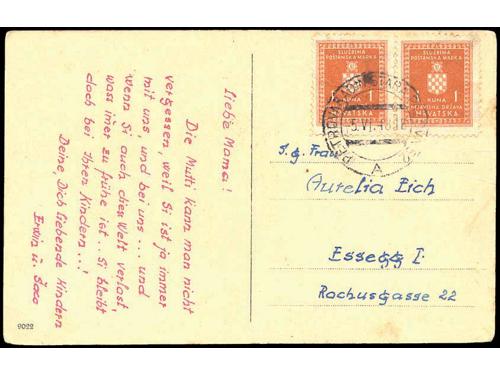 Liebe Mama!
Die Mutti kann man nicht
vergessen weil Si ist ja immer
mit uns und bei uns... und
wenn Si auch dies Welt verlast,
wass imer zu frühe ist.. Si bleibt
doch bei Ihren Kindern...!
Deine, Dich liebende Kindern
Erwin u.
9022
SLUŽBENA
POŠTANSKA MARKA
KUNA 1
NEZAVISNA DRŽAVA
HRVATSKA
SLUŽBENA
POŠTANSKA MARKA
KUNA 1
NEZAVISNA DRŽAVA
HRVATSKA
A
Frau
Aurelia Eich
Essegg I.
Rochusgasse 22